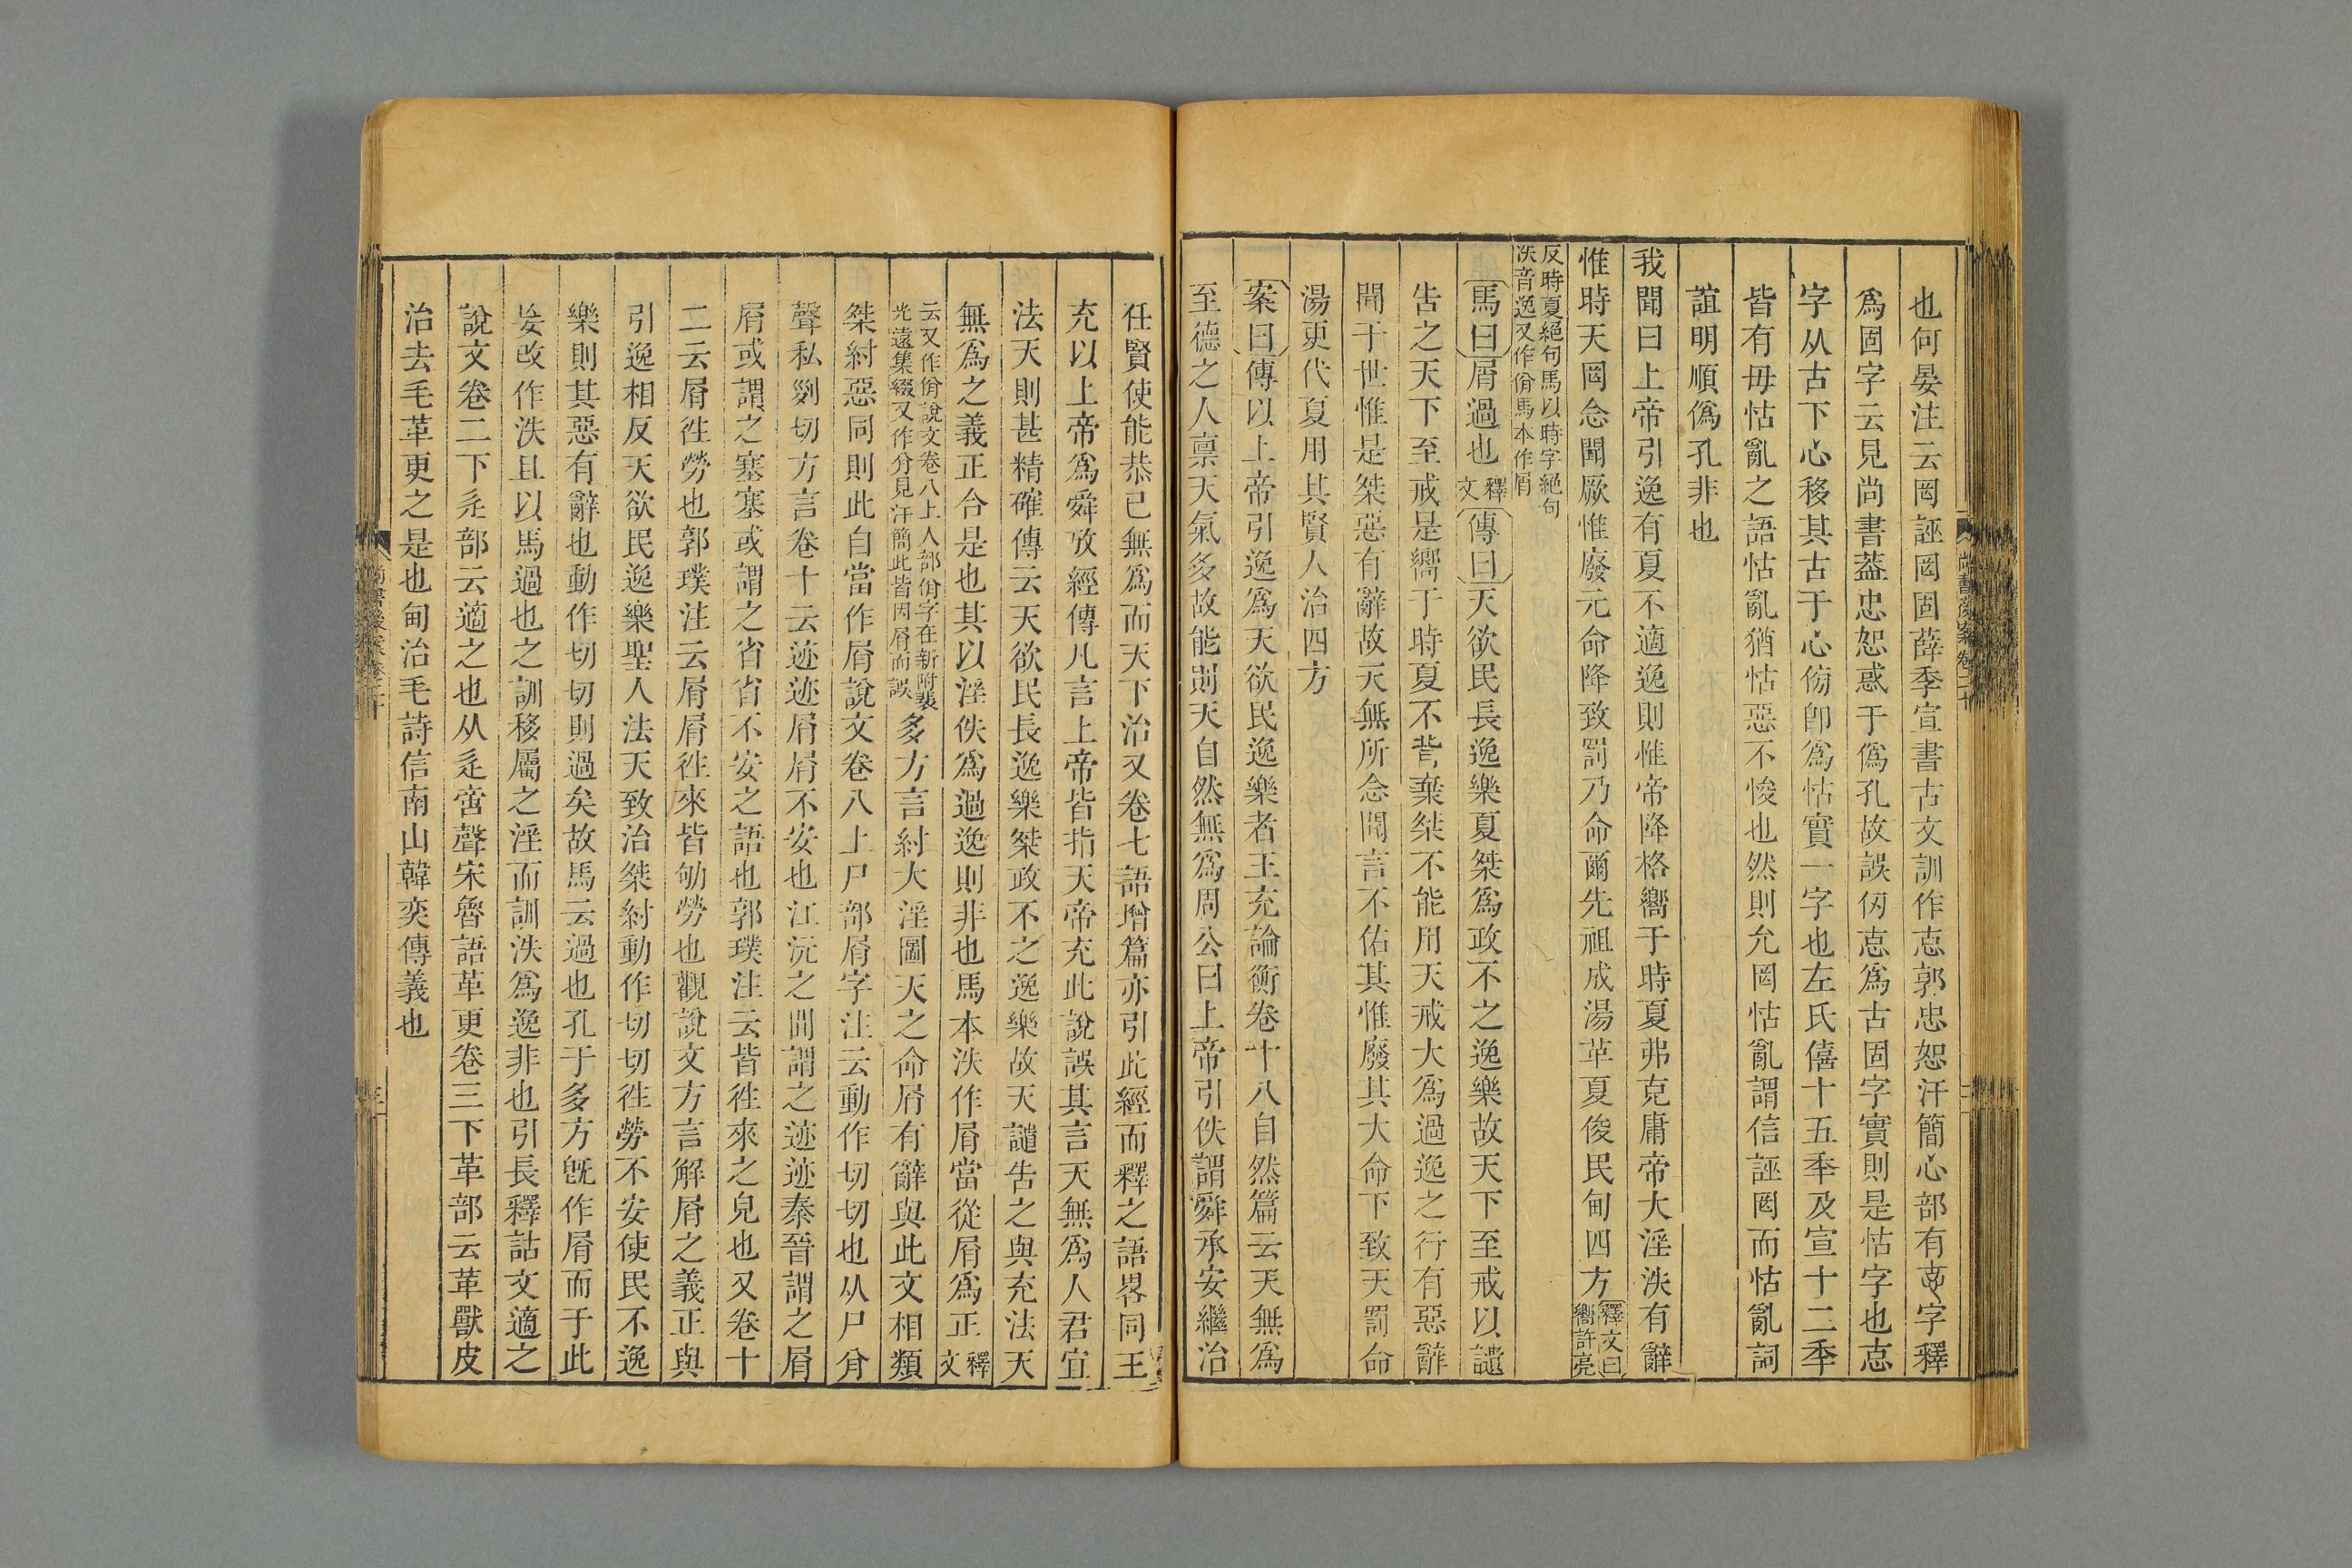 也何晏注云罔誣罔固薛季宣書古文訓作怘郭忠恕汗簡心部有字釋
爲固字云見尚書葢忠恕惑于僞孔故誤仞怘爲古固字實則是怙字也怘
字从古下心移其古于心㫄卽爲怙實一字也左氏僖十五秊及宣十二秊
皆有毋怙亂之語怙亂猶怙惡不悛也然則允罔怙亂謂信誣罔而怙亂詞
誼明順僞孔非也
我聞曰上帝引逸有夏不適逸則惟帝降格嚮于時夏弗克庸帝大淫泆有辭
惟時天罔念聞厥惟廢元命降致罰乃命爾先祖成湯革夏俊民甸四方釋文曰嚮許亮
反時夏絕句馬以時字絕句泆音逸又作佾馬本作屑
馬曰屑過也釋文傳曰天欲民長逸樂夏桀爲政不之逸樂故天下至戒以譴
告之天下至戒是嚮于時夏不背棄桀不能用天戒大爲過逸之行有惡辭
聞于世惟是桀惡有辭故天無所念聞言不佑其惟廢其大命下致天罰命
湯更代夏用其賢人治四方
案曰傳以上帝引逸爲天欲民逸樂者王充論衡卷十八自然篇云天無爲
至德之人禀天氣多故能則天自然無爲周公曰上帝引佚謂舜承安繼治
任賢使能恭己無爲而天下治又卷七語增篇亦引此經而釋之語畧同王
充以上帝爲舜攷經傳凡言上帝皆指天帝充此說誤其言天無爲人君宜
法天則甚精確傳云天欲民長逸樂桀政不之逸樂故天譴告之與充法天
無爲之義正合是也其以淫佚爲過逸則非也馬本泆作屑當從屑爲正釋文
云又作佾說文卷八上人部佾字在新附裴光遠集綴又作分見汗簡此皆因屑而誤多方言紂大淫圖天之命屑有辭與此文相類
桀紂惡同則此自當作屑說文卷八上尸部屑字注云動作切切也从尸㕣
聲私列切方言卷十云迹迹屑屑不安也江沅之閒謂之迹迹秦晉謂之屑
屑或謂之塞塞或謂之省省不安之語也郭璞注云皆徃來之皃也又卷十
二云屑徃勞也郭璞注云屑屑徃來皆劬勞也觀說文方言解屑之義正與
引逸相反天欲民逸樂聖人法天致治桀紂動作切切徃勞不安使民不逸
樂則其惡有辭也動作切切則過矣故馬云過也孔于多方旣作屑而于此
妄改作泆且以馬過也之訓移屬之淫而訓泆爲逸非也引長釋詁文適之
說文卷二下辵部云適之也从辵啻聲宋魯語革更卷三下革部云革獸皮
治去毛革更之是也甸治毛詩信南山韓奕傳義也